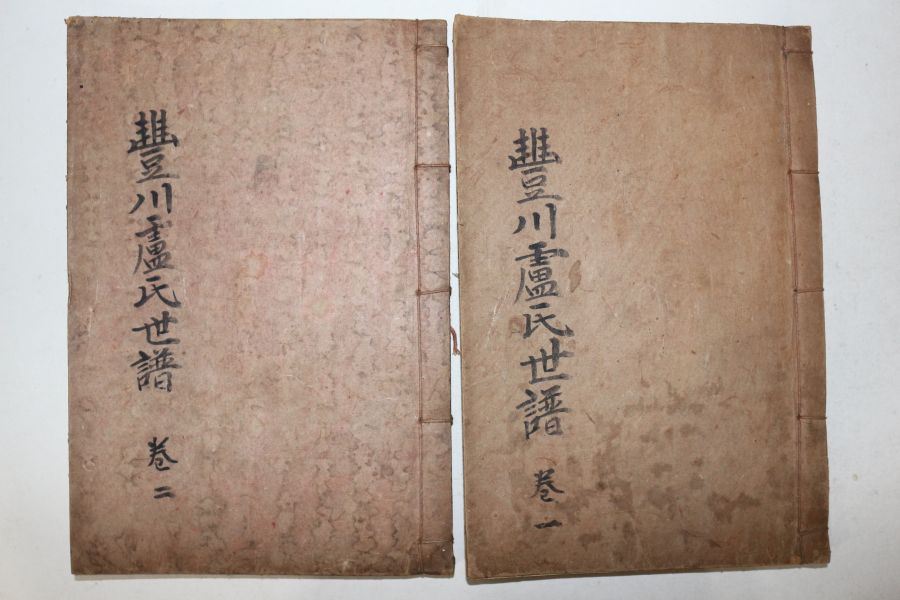 豐川盧氏世譜
卷一
豐川盧氏世譜
卷二